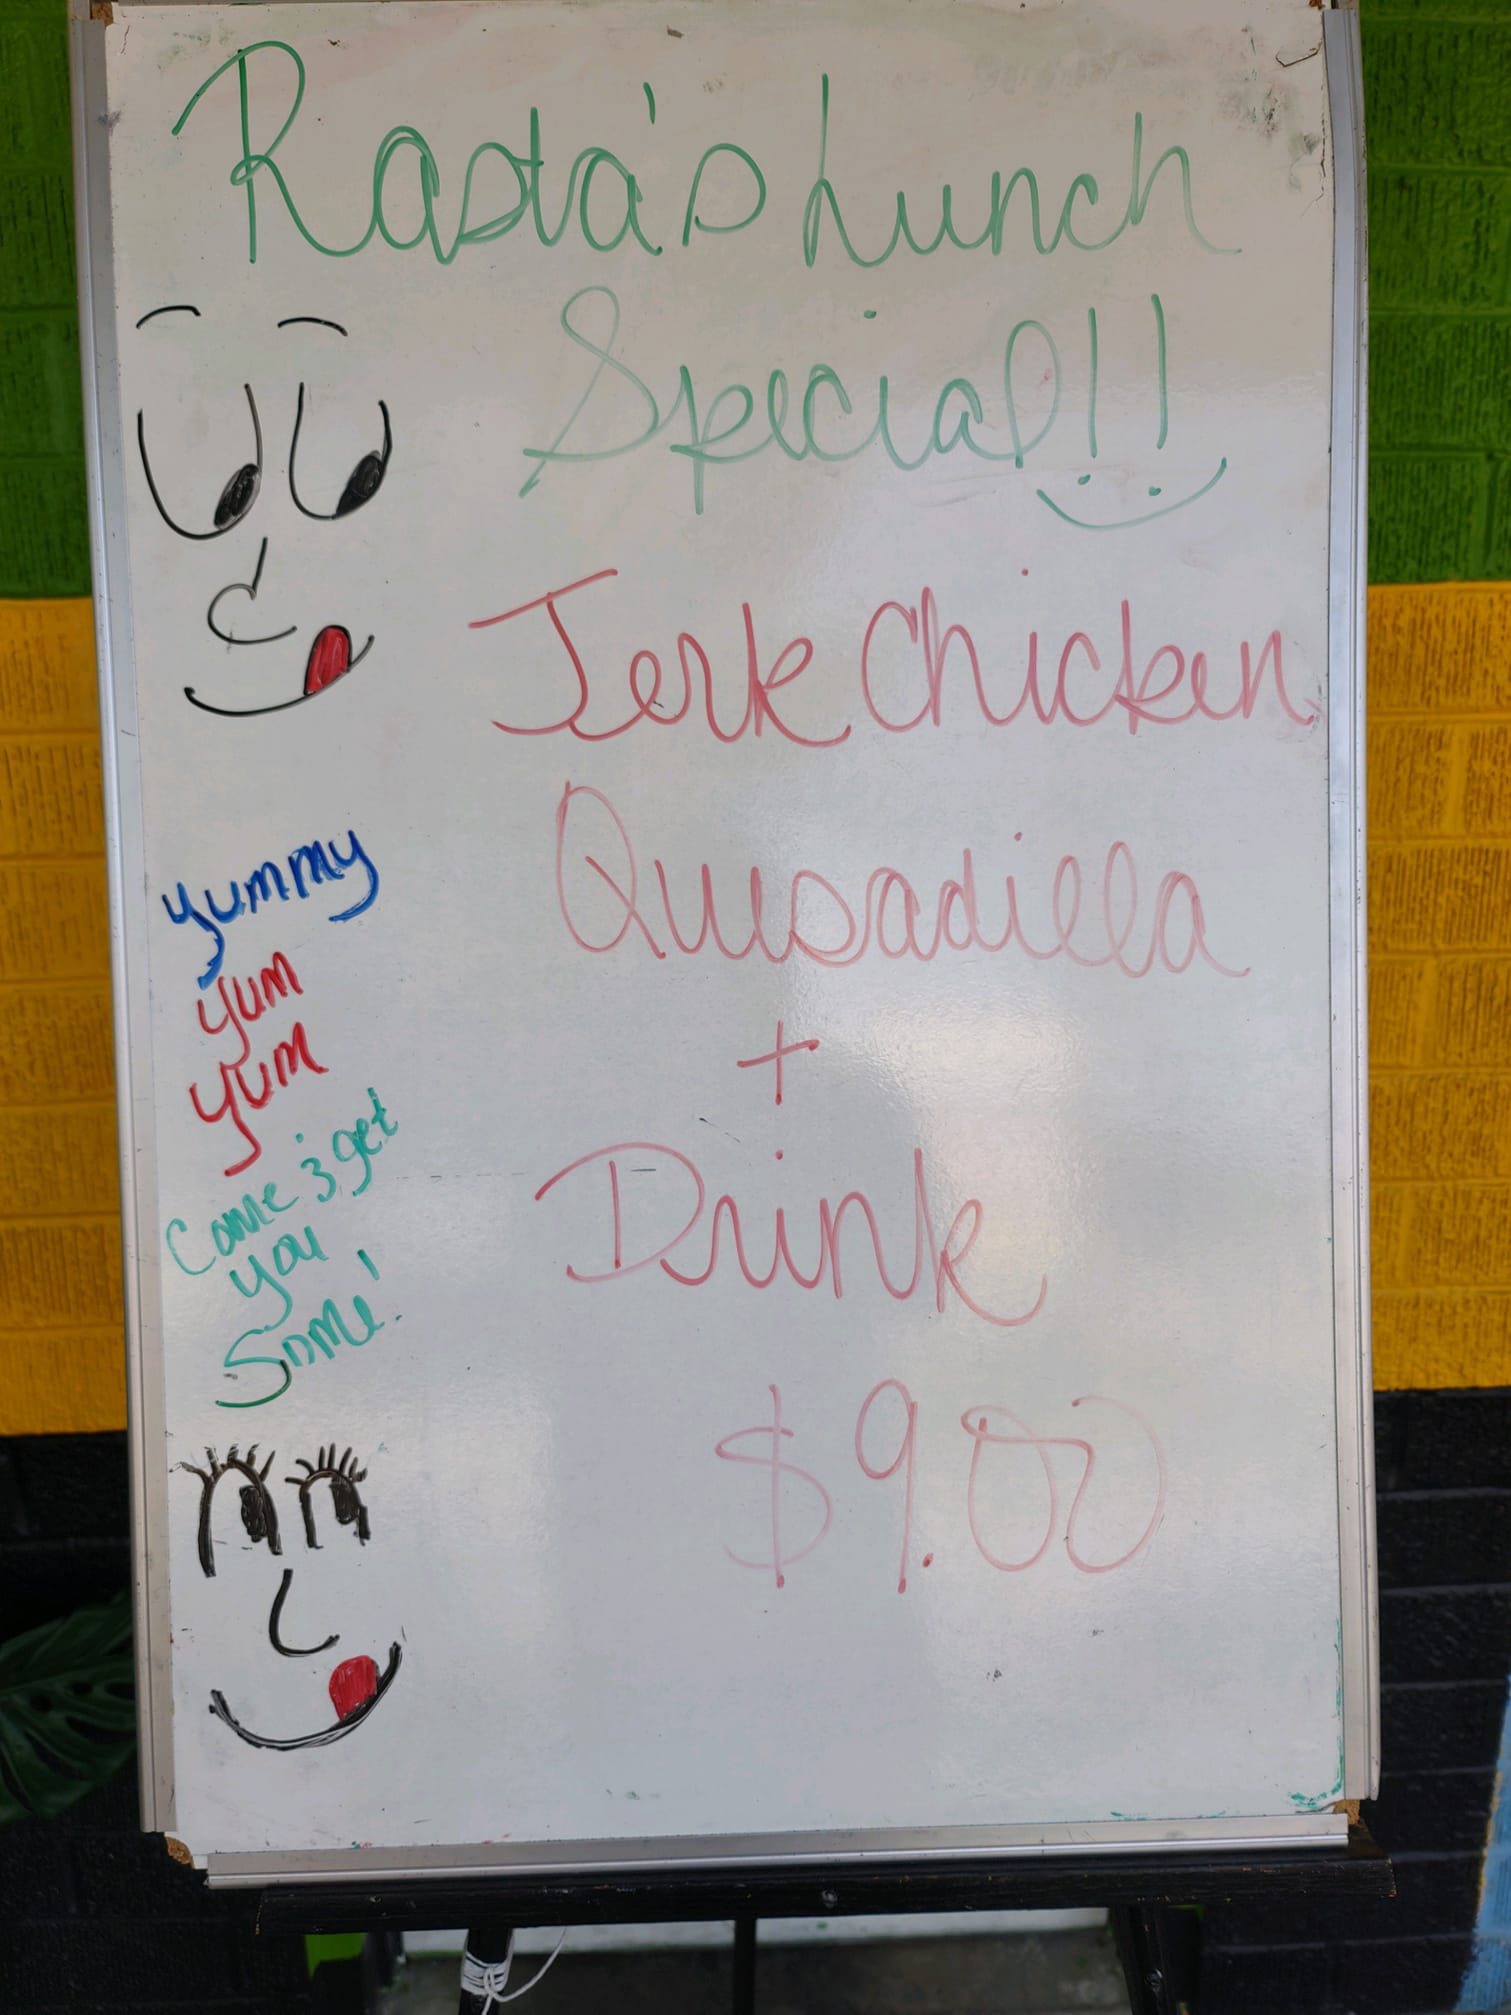 Rasta's Lunch
Special!!
Jerk Chicken
Quesadilla
+
Drink
$9.00
yummy
yum
yum
Come & get
you
Some!